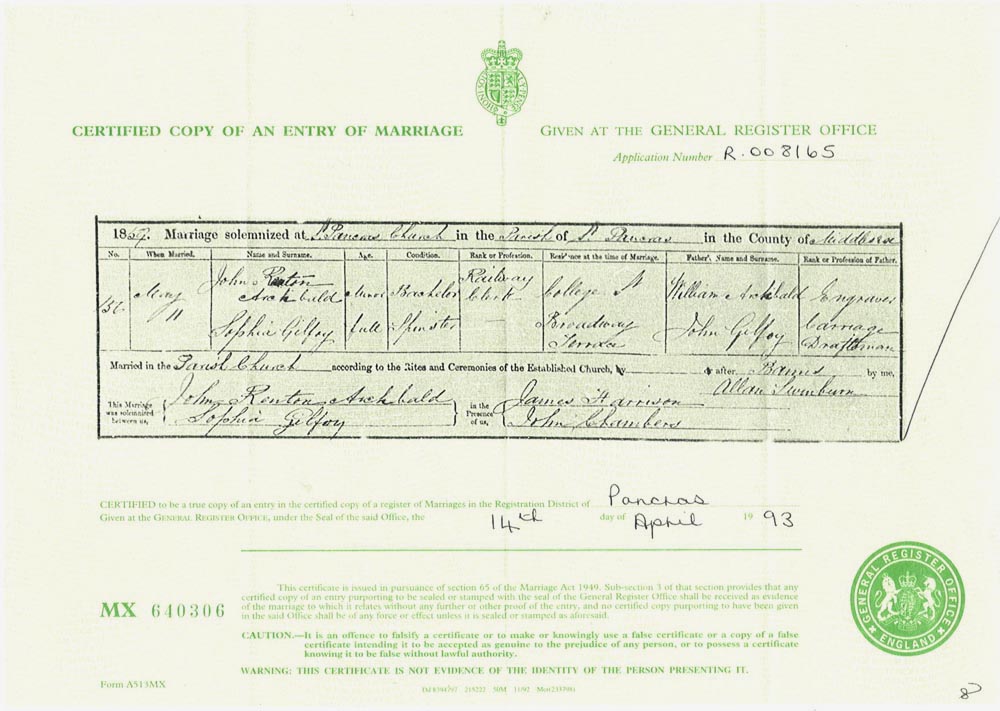 CERTIFIED COPY OF AN ENTRY OF MARRIAGE
GIVEN AT THE GENERAL REGISTER OFFICE
Application Number R.008165
1859. Marriage solemnized at St Pancras Church in the Parish of St Pancras in the County of Middlesex
No. When Married. Name and Surname. Age. Condition. Rank or Profession. Residence at the time of Marriage. Father's Name and Surname. Rank or Profession of Father.
May 11
John Renton Archibald Minor Bachelor Railway Clerk College St William Archibald Engraver
Sophia Gilfoy full Spinster — Broadway Terrace John Gilfoy Carriage Draftsman
Married in the Parish Church according to the Rites and Ceremonies of the Established Church, by or after Banns by me,
Allan Swinburn
This Marriage was solemnized between us,
John Renton Archibald
Sophia Gilfoy
in the Presence of us,
James Harrison
John Chambers
CERTIFIED to be a true copy of an entry in the certified copy of a register of Marriages in the Registration District of Pancras
Given at the GENERAL REGISTER OFFICE, under the Seal of the said Office, the 14th day of April 1993
This certificate is issued in pursuance of section 65 of the Marriage Act 1949. Sub-section 3 of that section provides that any
certified copy of an entry purporting to be sealed or stamped with the seal of the General Register Office shall be received as evidence
of the marriage to which it relates without any further or other proof of the entry, and no certified copy purporting to have been given
in the said Office shall be of any force or effect unless it is sealed or stamped as aforesaid.
MX 640306
CAUTION.—It is an offence to falsify a certificate or to make or knowingly use a false certificate or a copy of a false
certificate intending it to be accepted as genuine to the prejudice of any person, or to possess a certificate
knowing it to be false without lawful authority.
WARNING: THIS CERTIFICATE IS NOT EVIDENCE OF THE IDENTITY OF THE PERSON PRESENTING IT.
GENERAL REGISTER OFFICE
ENGLAND
Form A513MX
50M 11/92
8